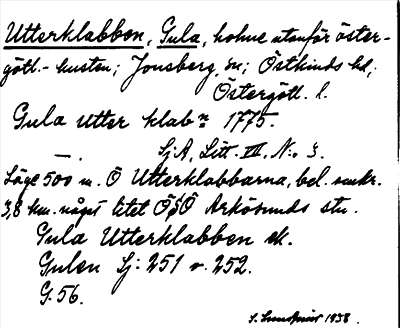 Utterklabben, Gula, holme utanför öster-
götl.- kusten; Jonsberg sn; Östkinds hd;
Östergötl. l.
Gula utter klabn 1775.
— . Sj A, Litt. VII, N:o 3.
Läge 500 m. Ö Utterklabbarna, bel. omkr.
3,8 km. något litet ÖSÖ Arkösunds stn.
Gula Utterklabben ek.
Gulen Sj: 251 o. 252.
G. 56.
S. 1938.